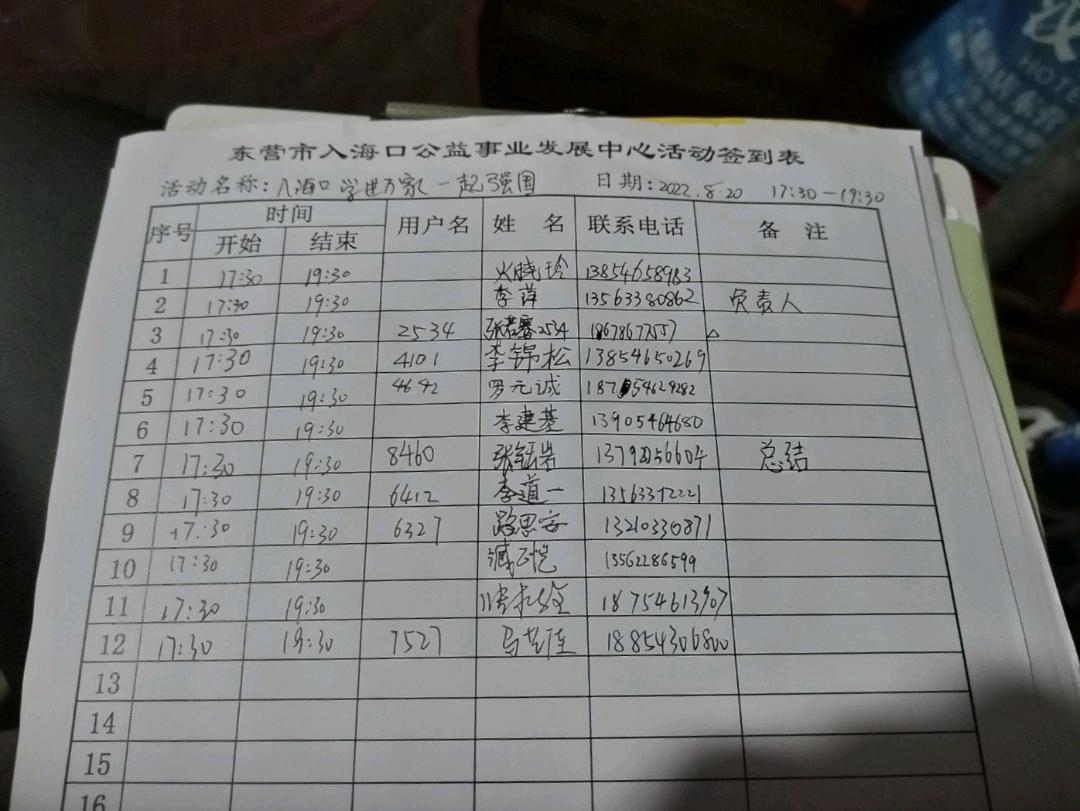 东营市入海口公益事业发展中心活动签到表
活动名称：入海口 学进万家 一起强国 日期：2022.8.20 17:30—19:30
序号 时间 用户名 姓 名 联系电话 备 注
开始 结束
1 17:30 19:30 晓玲 13854658983
2 17:30 19:30 李萍 13563380862 负责人
3 17:30 19:30 2534 张若馨2534 18678677557
4 17:30 19:30 4101 李锦松 13854650269
5 17:30 19:30 4642 罗元诚 18754629282
6 17:30 19:30 李建基 13905464680
7 17:30 19:30 8460 张钰岩 13792056604 总结
8 17:30 19:30 6412 李道一 13563372221
9 17:30 19:30 6327 路思容 13210330871
10 17:30 19:30 13562286599
11 17:30 19:30 18754613907
12 17:30 19:30 7527 马 18854306800
13
14
15
16
HOTE